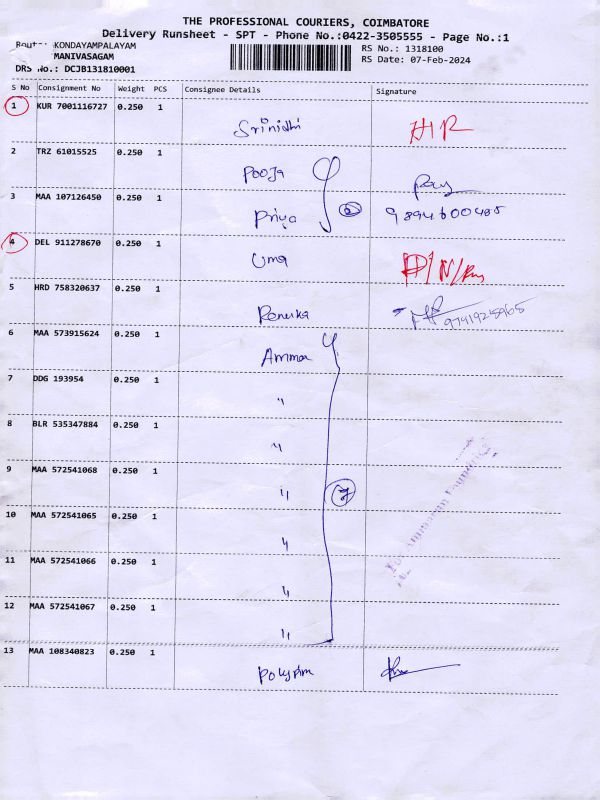 THE PROFESSIONAL COURIERS, COIMBATORE
Delivery Runsheet - SPT - Phone No.:0422-3505555 - Page No.:1
KONDAYAMPALAYAM
RS No.: 1318100
MANIVASAGAM
RS Date: 07-Feb-2024
DRS No.: DCJB131810001
S No Consignment No Weight PCS Consignee Details Signature
1 KUR 7001116727 0.250 1 Srinidhi
2 TRZ 61015525 0.250 1 Pooja
3 MAA 107126450 0.250 1 Priya 2 9894600485
4 DEL 911278670 0.250 1 Uma
5 HRD 758320637 0.250 1 Renuka
6 MAA 573915624 0.250 1 Amman
7 DDG 193954 0.250 1 "
8 BLR 535347884 0.250 1 "
9 MAA 572541068 0.250 1 " 7
10 MAA 572541065 0.250 1 "
11 MAA 572541066 0.250 1 "
12 MAA 572541067 0.250 1 "
13 MAA 108340823 0.250 1